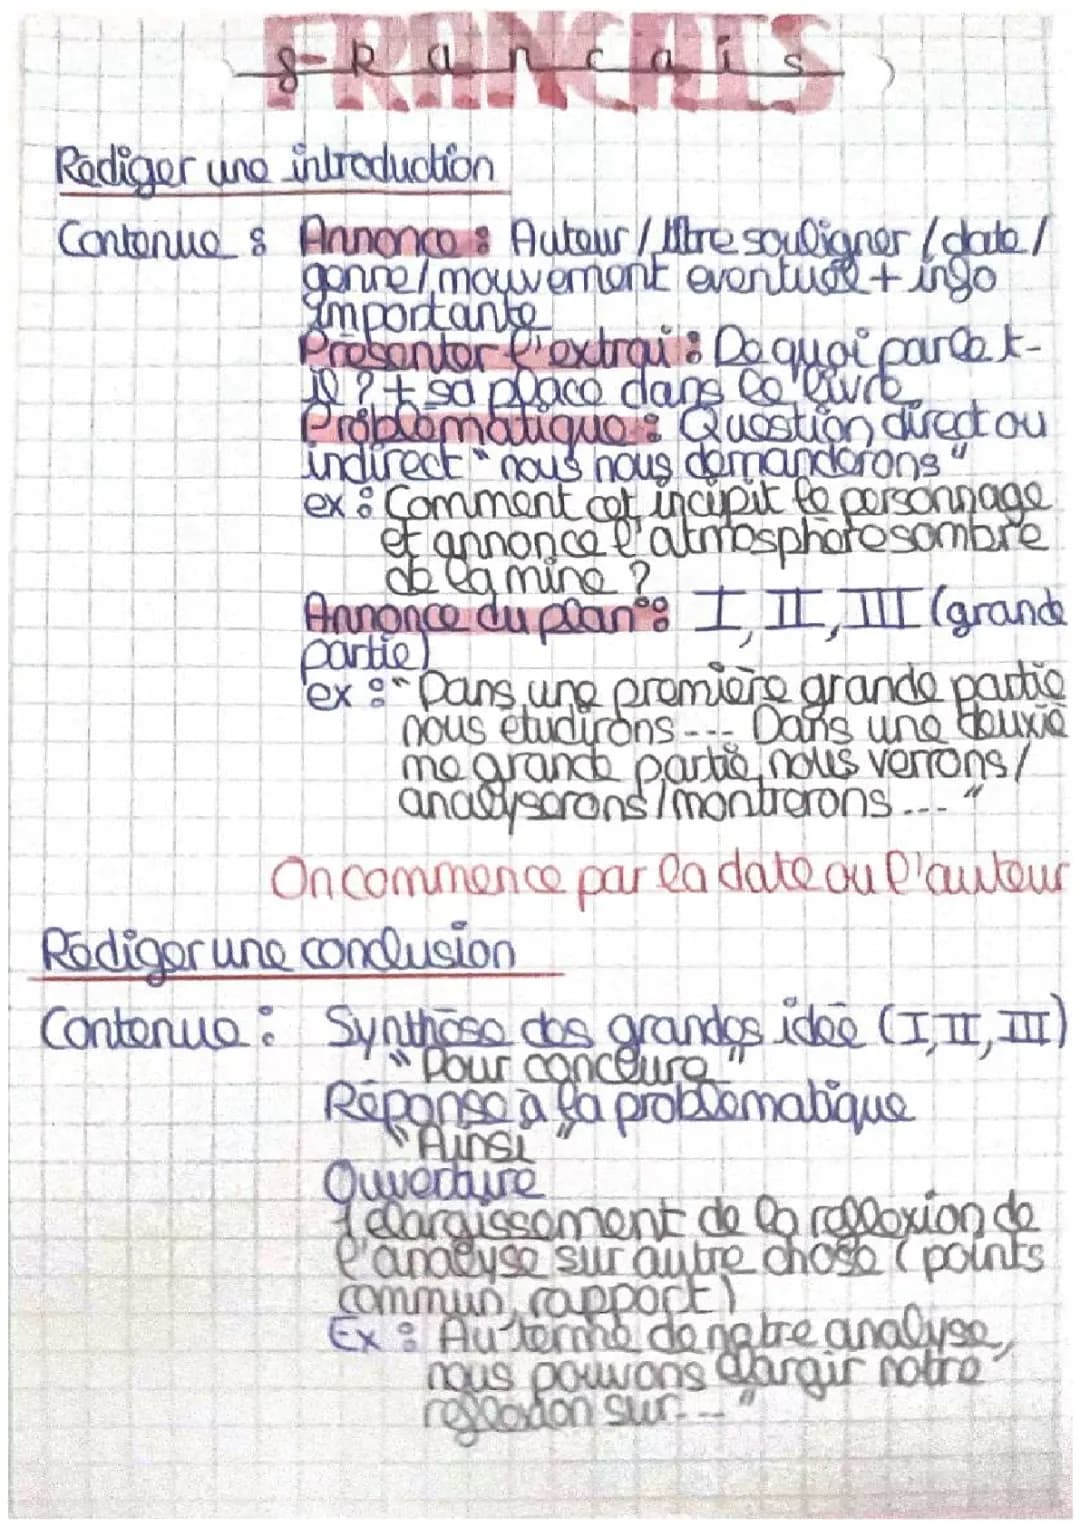 FRANCAIS
Français
Rédiger une introduction
Contenue : Annonce : Auteur / titre souligner / date /
genre / mouvement eventuel + info
importante
Présenter l'extrai : De quoi parle t-
il ? + sa place dans le livre
Problématique : Question direct ou
indirect "nous nous demanderons"
ex : Comment cet incipit le personnage
et annonce l'atmosphère sombre
de la mine ?
Annonce du plan : I, II, III (grande
partie)
ex : "Dans une première grande partie
nous etudirons --- Dans une deuxiè
me grande partie, nous verrons /
analyserons / montrerons ... "
On commence par la date ou l'auteur
Rédiger une conclusion
Contenue : Synthèse des grandes idée (I, II, III)
"Pour conclure"
Réponse à la problématique
"Ainsi"
Ouverture
elargissement de la reflexion de
l'analyse sur autre chose (points
commun, rapport)
Ex : Au terme de notre analyse,
nous pouvons élargir notre
reflexion sur --- "